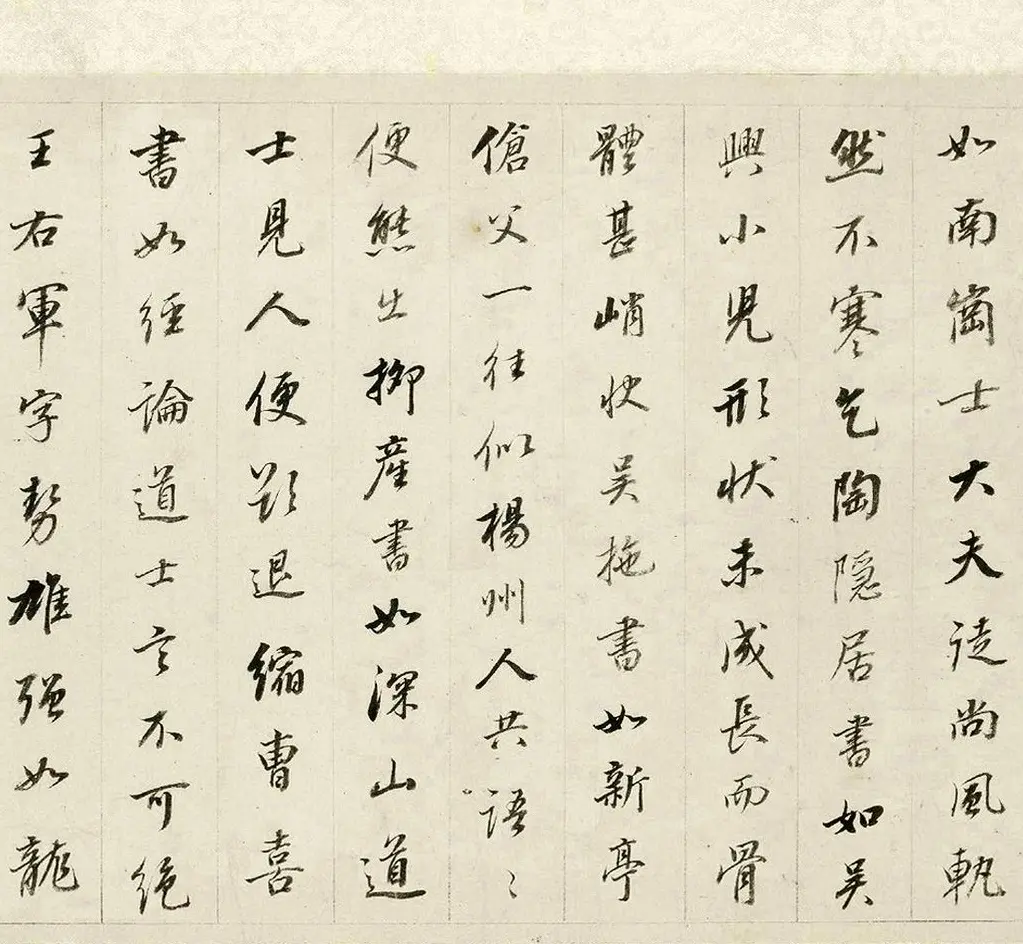 如南崗士大夫徒尚風軌
然不寒乞陶隱居書如吳
興小兒形狀未成長而骨
體甚峭快吳拖書如新亭
傖父一往似楊州人共語〻
便態出柳產書如深山道
士見人便欲退縮曹喜
書如經論道士言不可絕
王右軍字勢雄强如龍